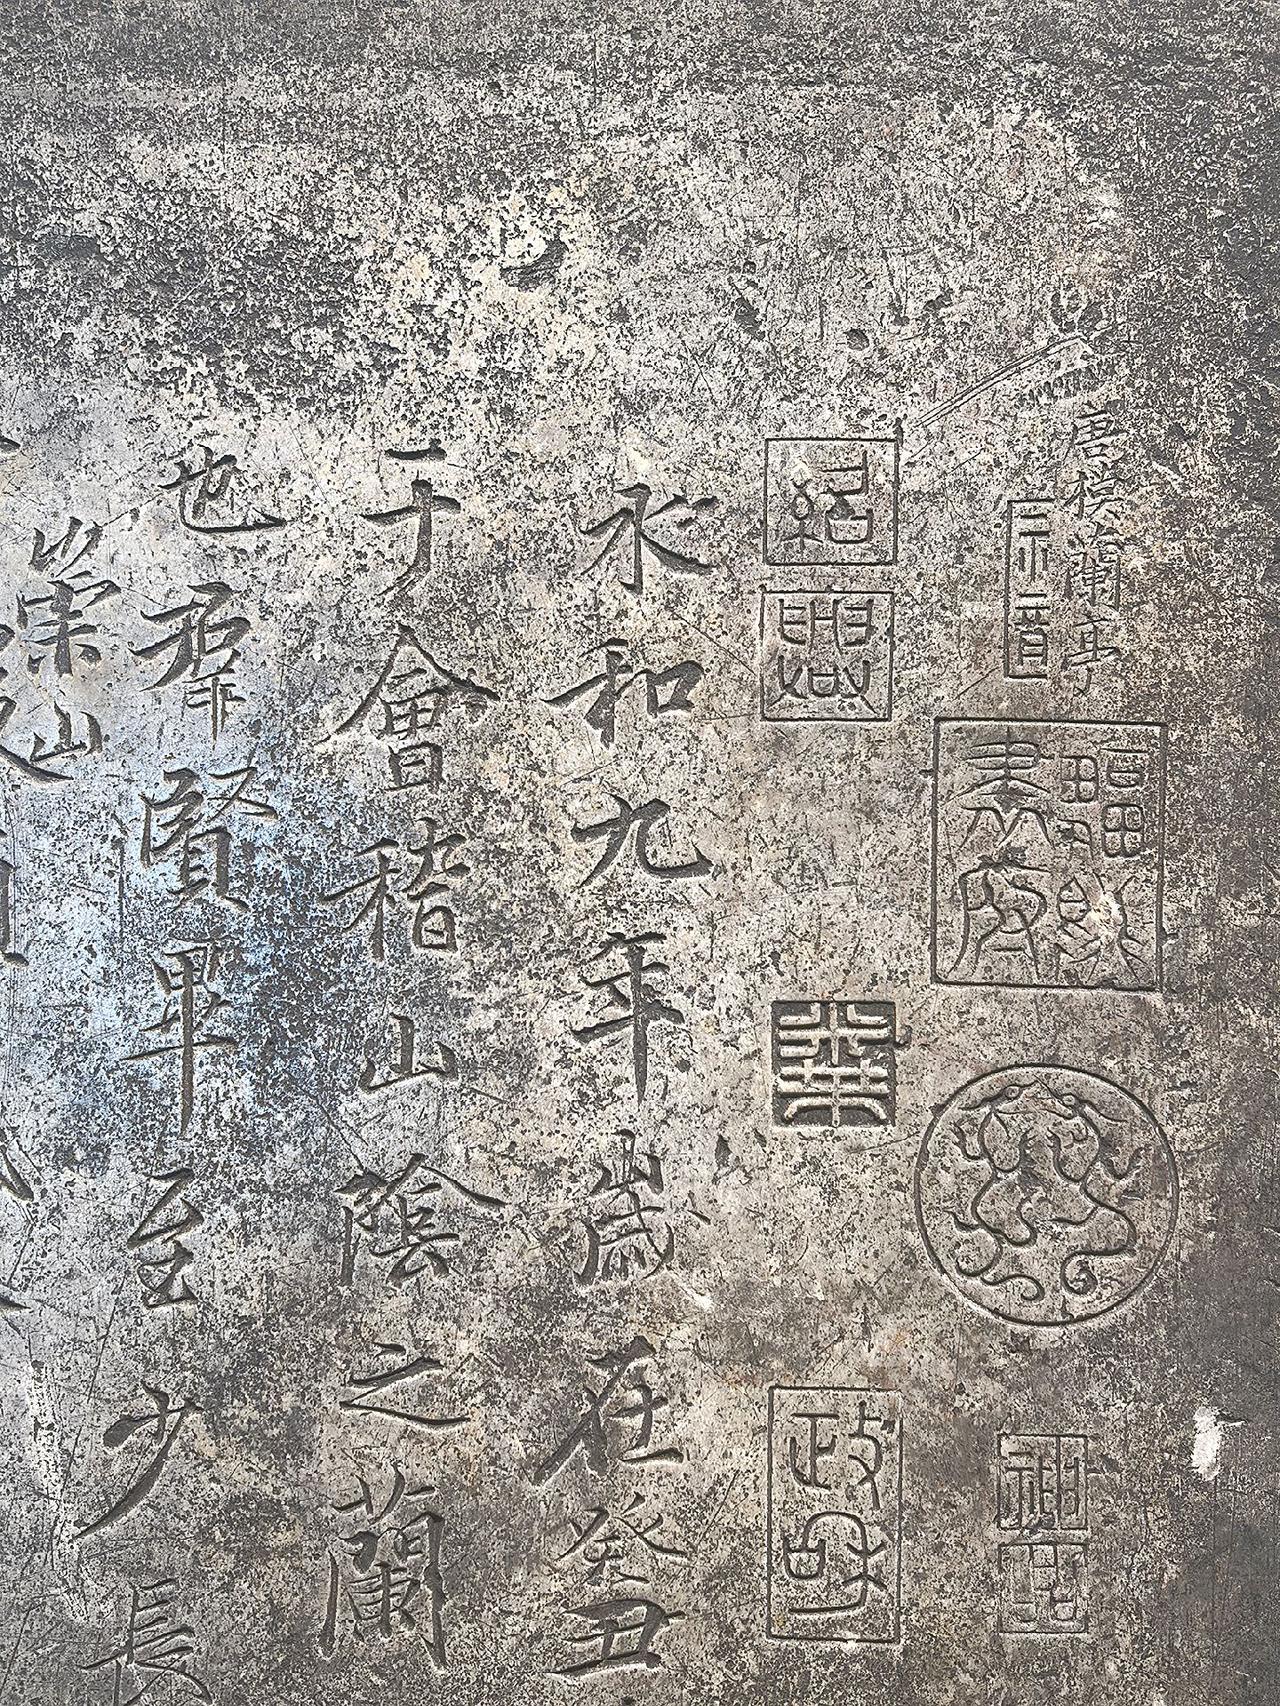 唐模蘭亭
書府
紹興
政和
永和九年歲在癸丑
于會稽山陰之蘭
也羣賢畢至少長
崇山